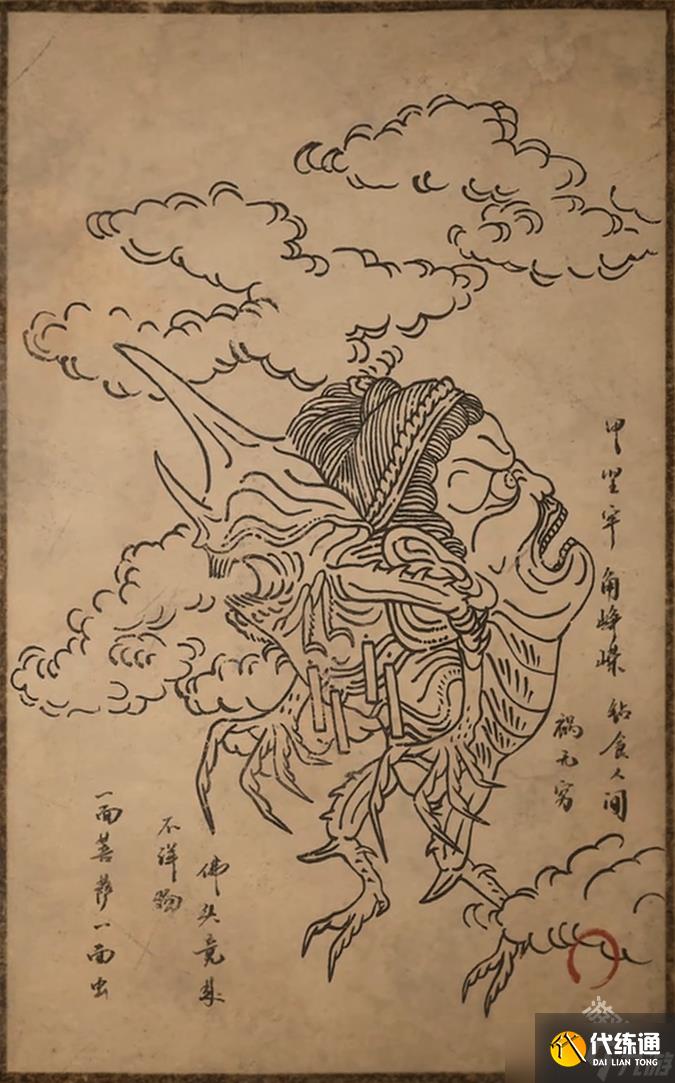 甲坚牢 角峥嵘 钻食人间
祸无穷
佛头竟
不祥物
一面菩萨一面虫
代练通
DAI LIAN TONG